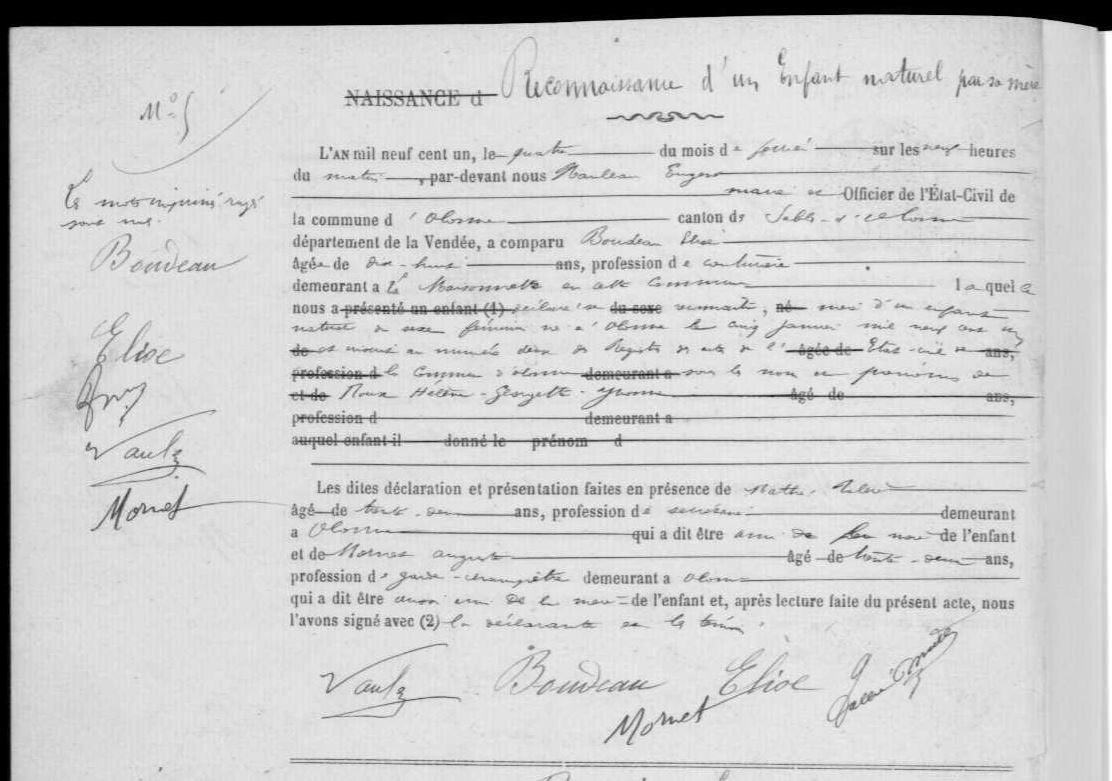 NAISSANCE d Reconnaissance d'un Enfant naturel par sa mère
N° 5
L'AN mil neuf cent un, le quatre du mois de février sur les neuf heures
du matin, par-devant nous Eugène
maire Officier de l'État-Civil de
la commune d'Olonne canton des Sables-d'Olonne
département de la Vendée, a comparu Boudeau Elise
âgée de dix-huit ans, profession de couturière
demeurant a la Maisonnette en cette commune laquelle
nous a présenté un enfant (1) déclaré se du sexe reconnaître, né mère d'un enfant
naturel du sexe féminin né à Olonne le cinq janvier mil neuf cent un
de et inscrit au numéro deux du Registre des actes de l' âgée de Etat-civil de ans,
profession d la commune d'Olonne demeurant a sous les nom et prénoms de
et de Roux Hélène-Georgette-Yvonne âgé de ans,
profession d demeurant a
auquel enfant il donné le prénom d
Les mots imprimés rayés
sont nuls.
Boudeau
Elise
Vaulx
Mornet
Les dites déclaration et présentation faites en présence de
âgé de trente-deux ans, profession de secrétaire demeurant
a Olonne qui a dit être ami de la mère de l'enfant
et de Mornet auguste âgé de trente-deux ans,
profession de garde-champêtre demeurant a Olonne
qui a dit être aussi ami de la mère de l'enfant et, après lecture faite du présent acte, nous
l'avons signé avec (2) la déclarante et les témoins.
Vaulx Boudeau Elise
Mornet